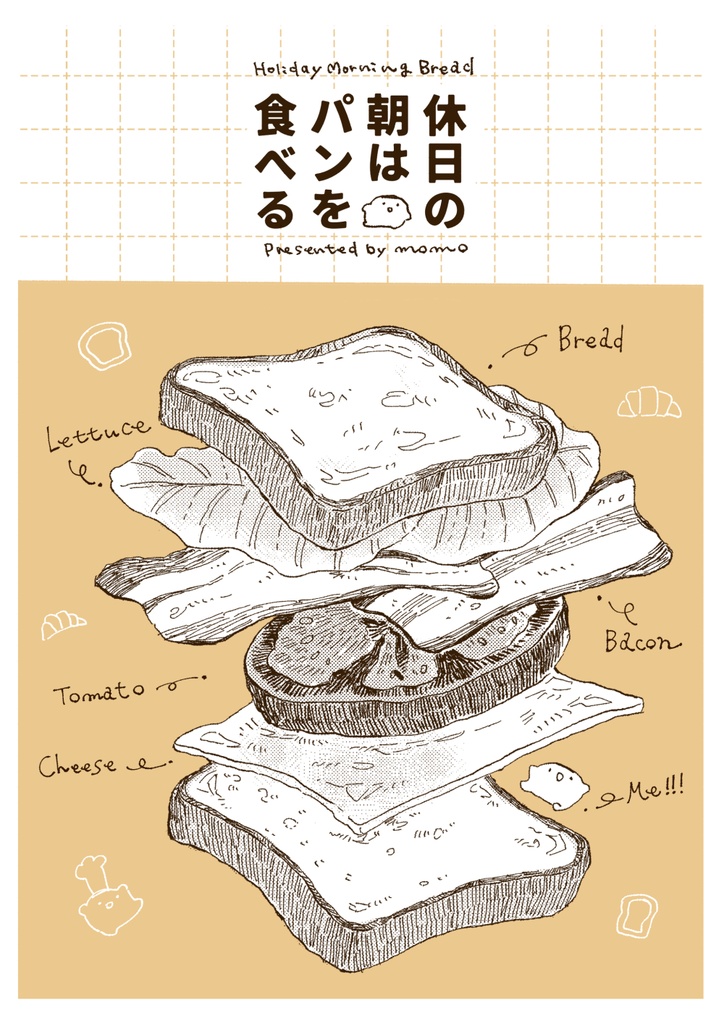 Holiday Morning Bread
休日の
朝は
パンを
食べる
Presented by momo
Bread
Lettuce
Bacon
Tomato
Cheese
Me!!!